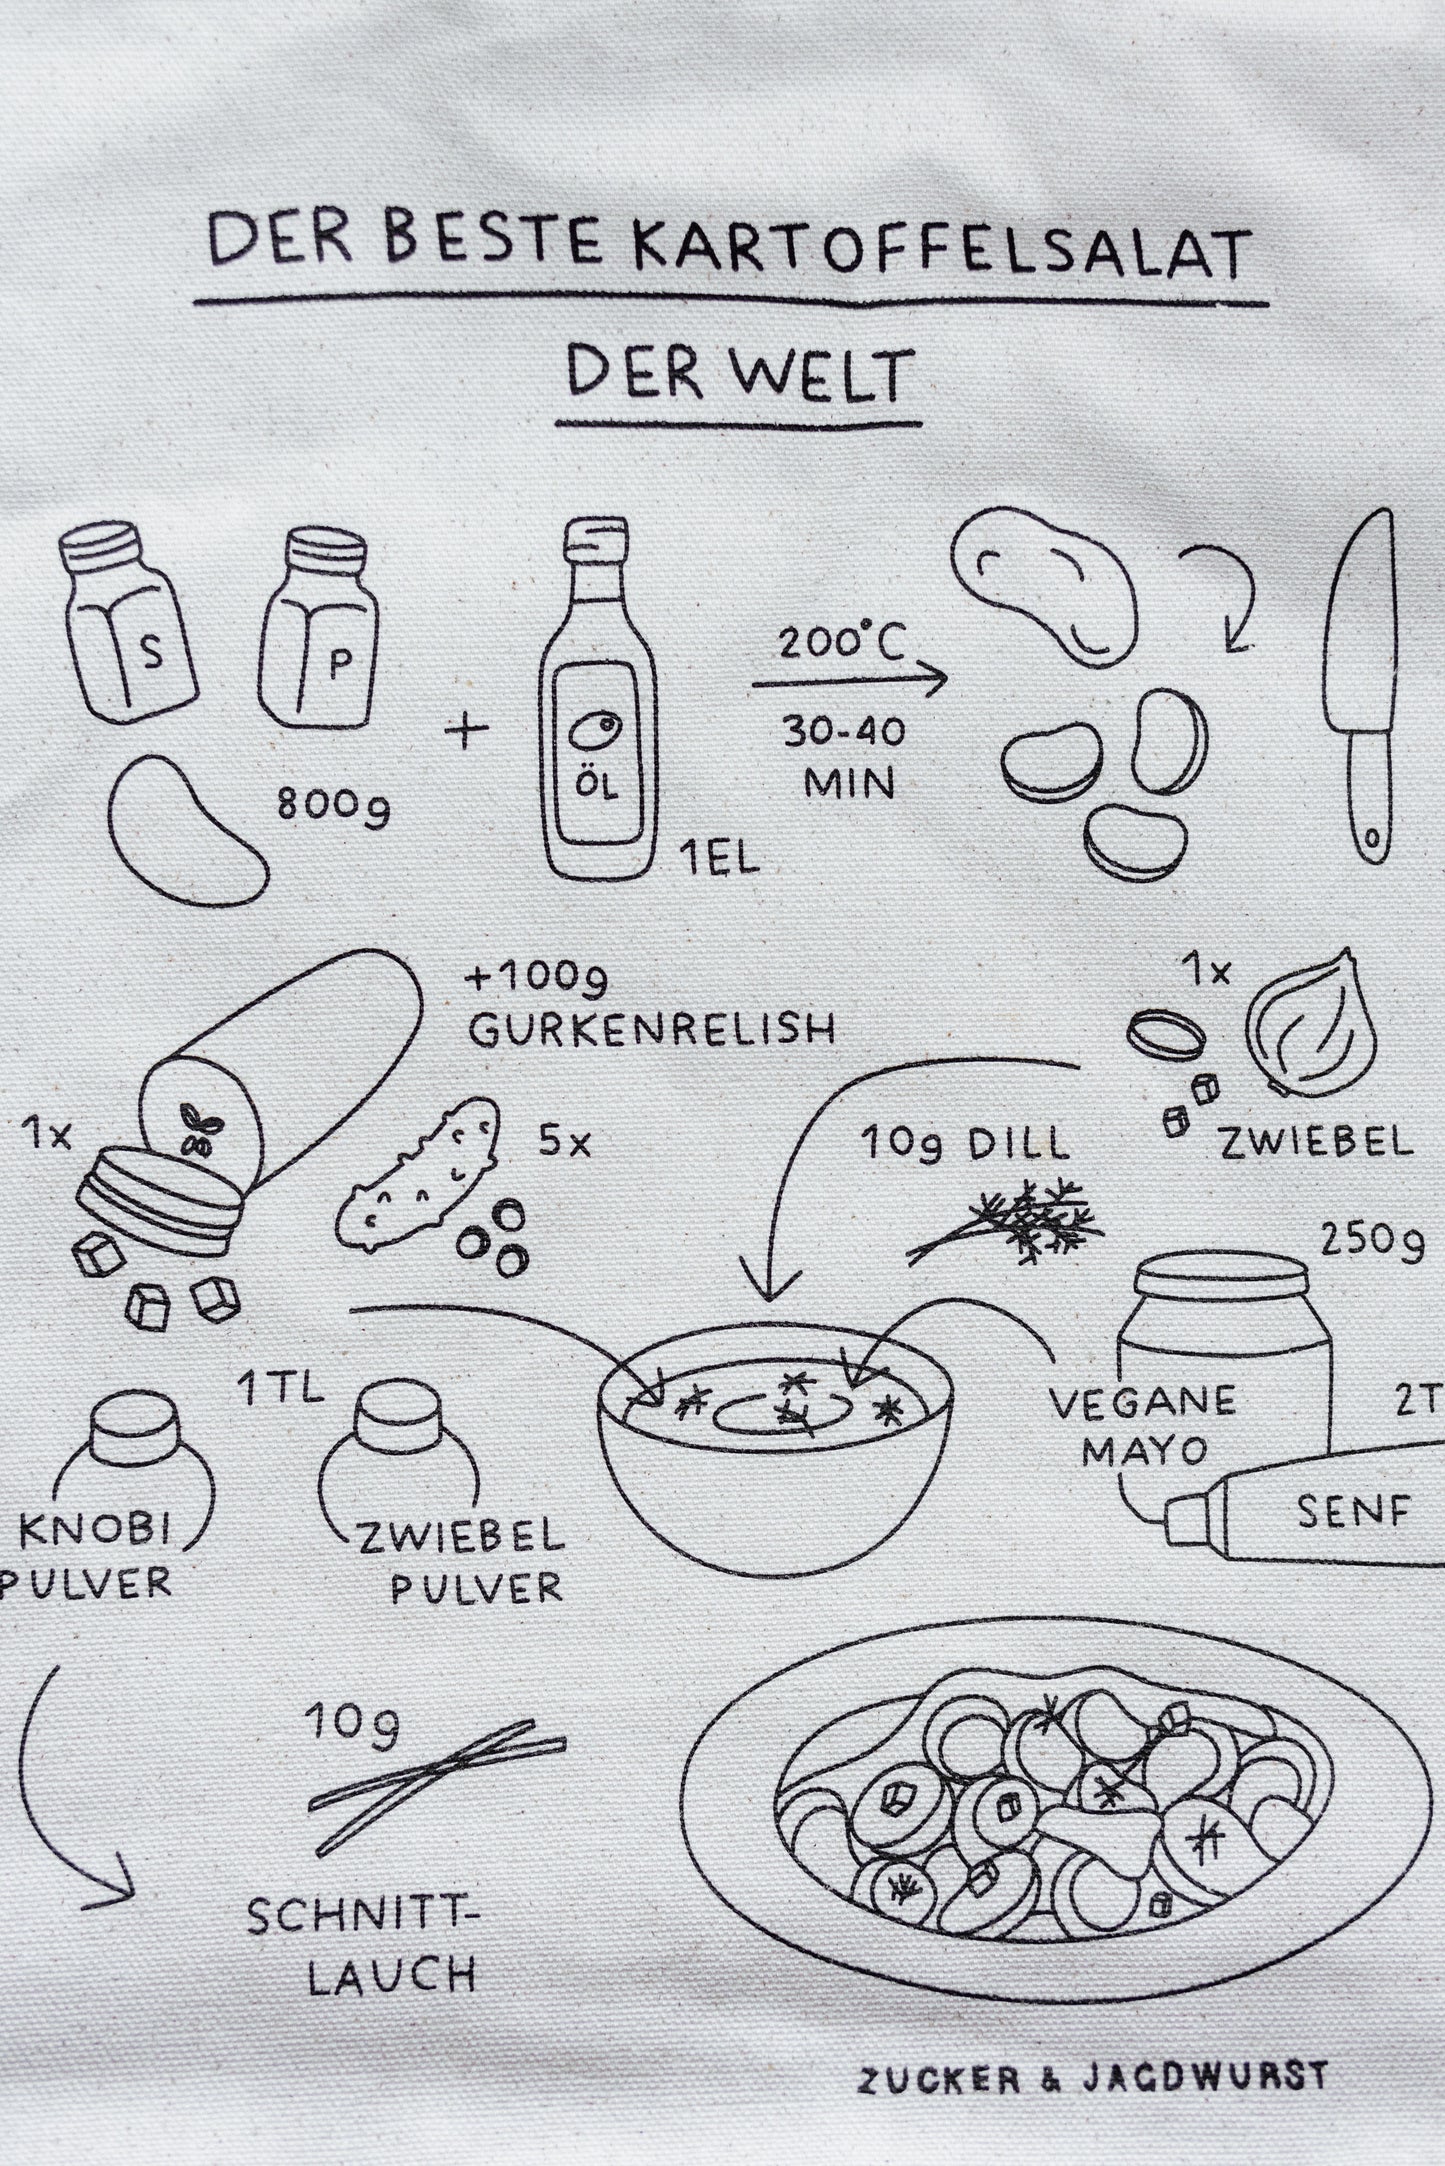 DER BESTE KARTOFFELSALAT
DER WELT
S
P
800g
+
ÖL
1EL
200°C
30-40
MIN
1x
+100g
GURKENRELISH
5x
1x
ZWIEBEL
10g DILL
250g
VEGANE
MAYO
2T
SENF
1TL
KNOBI
PULVER
ZWIEBEL
PULVER
10g
SCHNITT-
LAUCH
ZUCKER & JAGDWURST